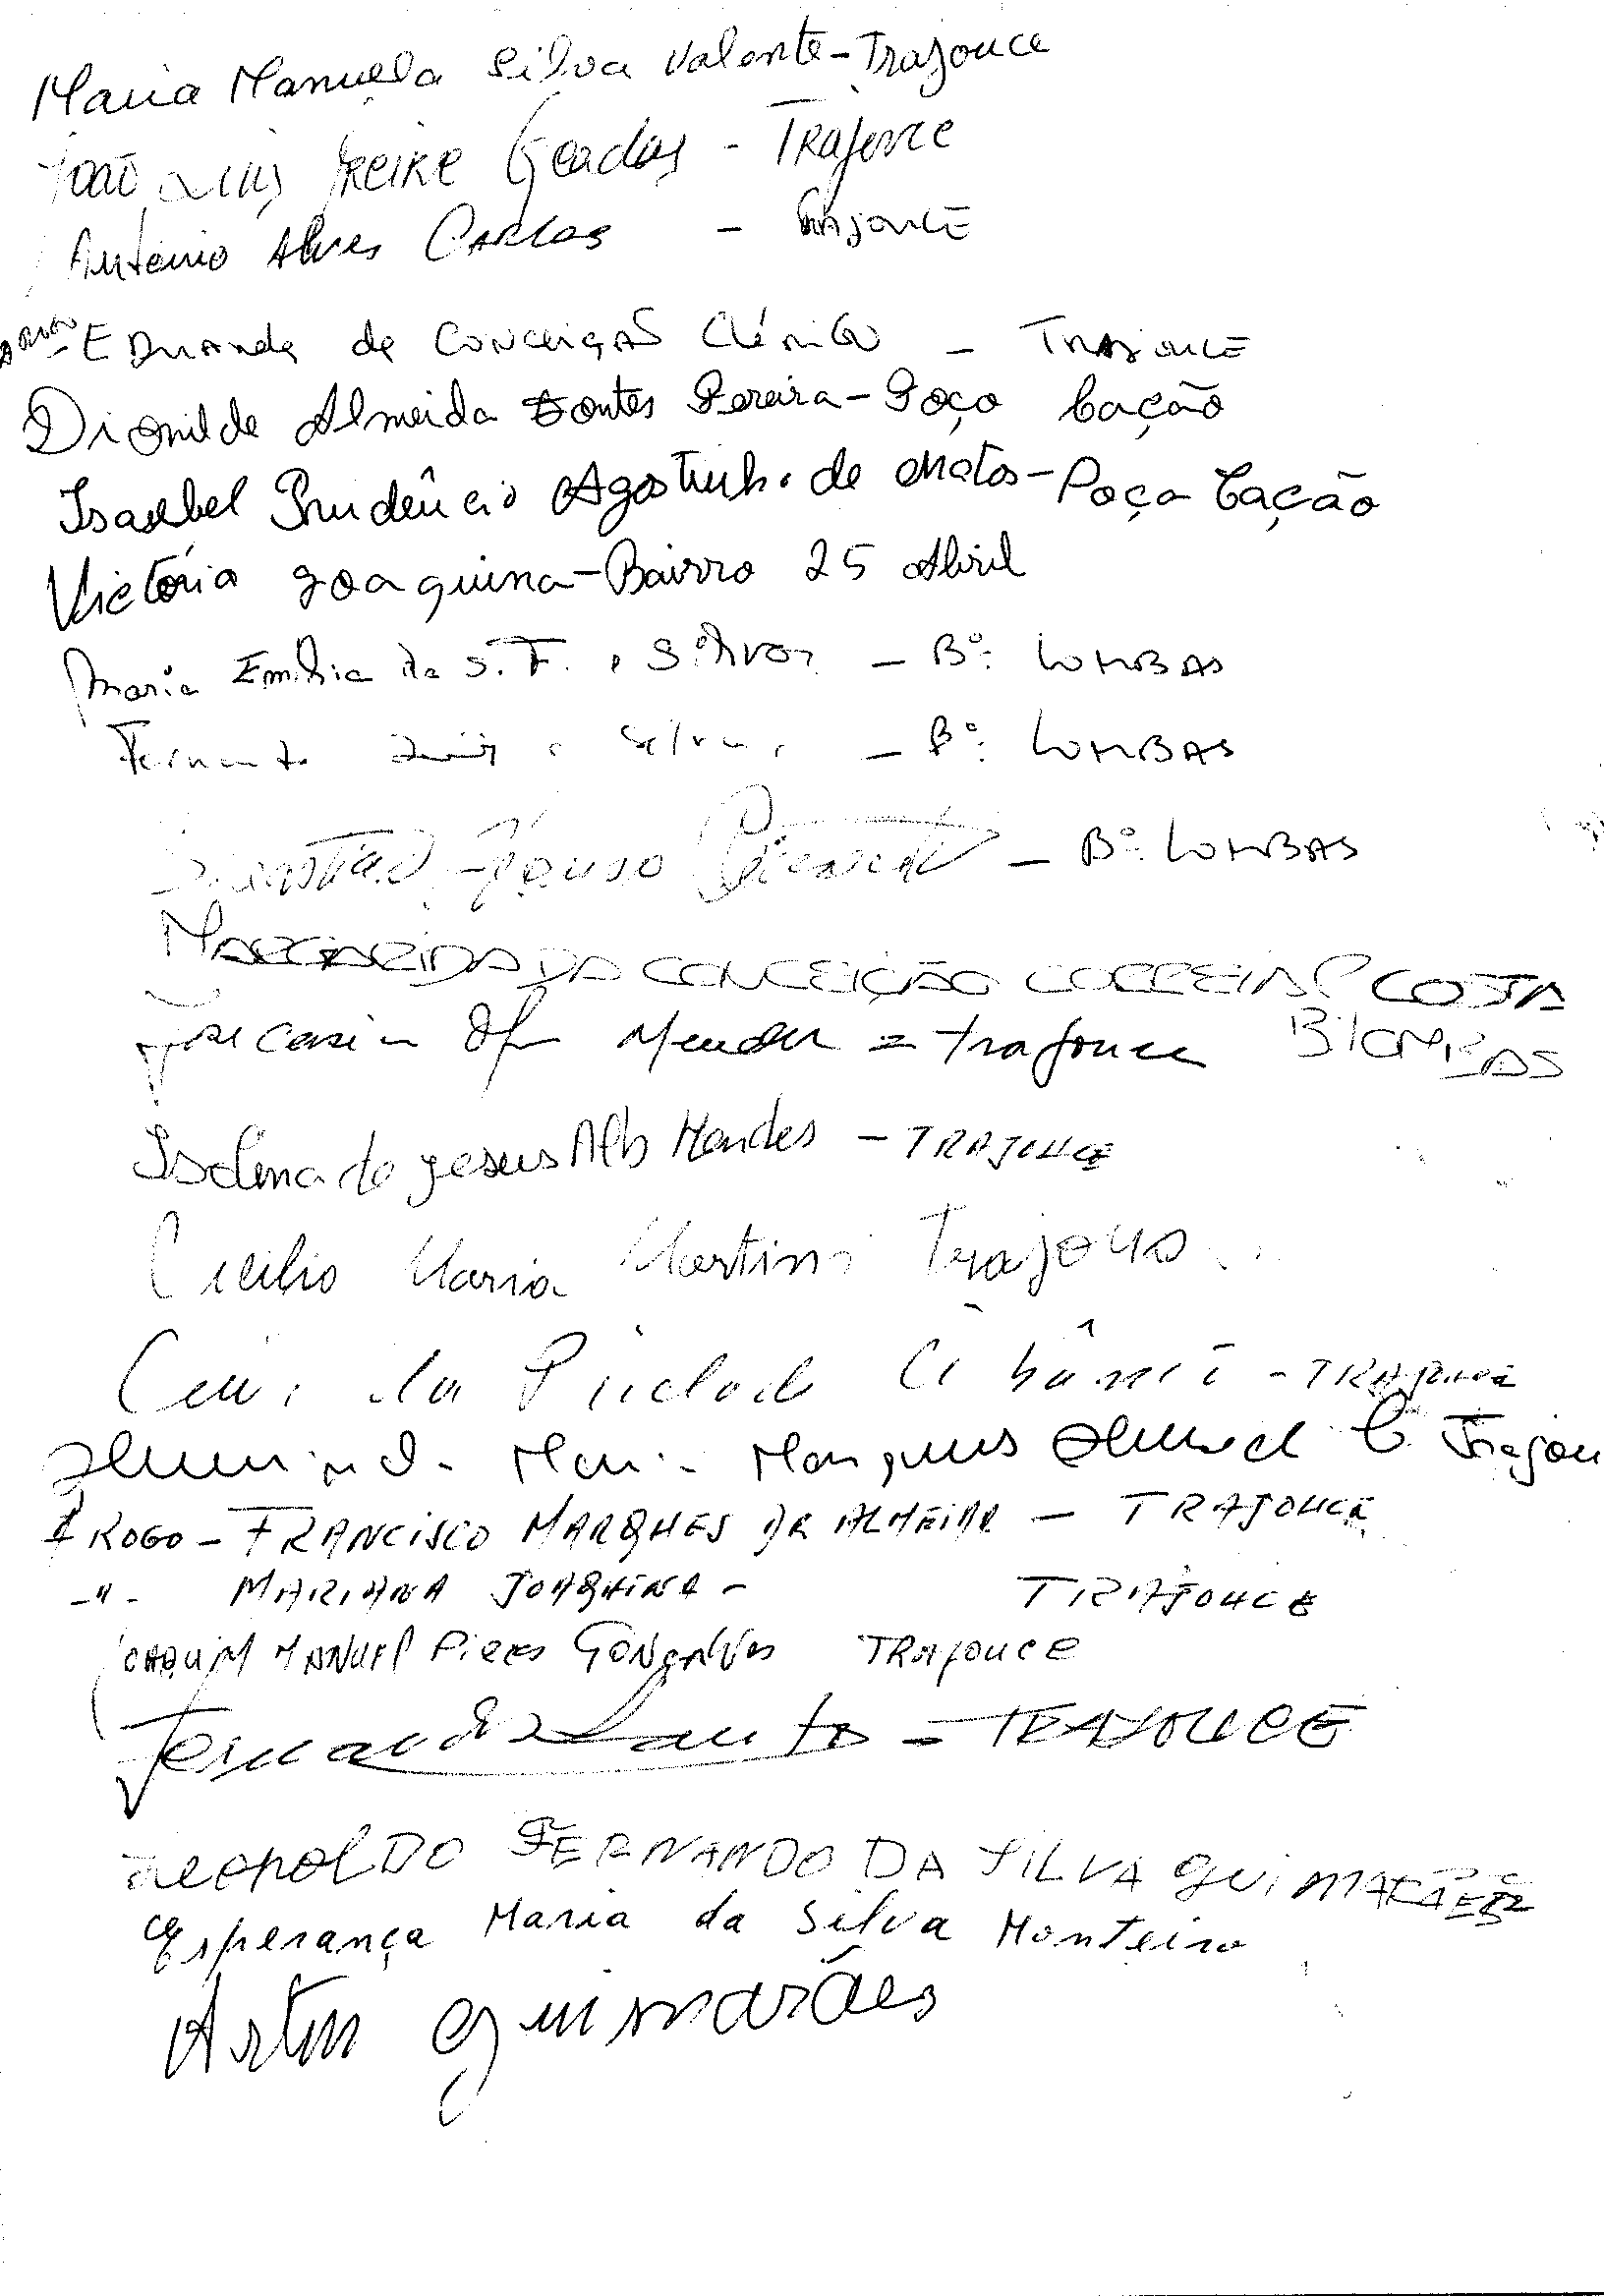 Maria Manuela Silva Valente - Trajouce
João Luis Freire Geadas - Trajouce
António Alves Carlos - Trajouce
Eduarda da Conceição Clérigo - Trajouce
Dionilde Almeida Fontes Pereira - Poço Cação
Isabel Prudêncio Agostinho de Matos - Poça Cação
Victória Joaquina - Bairro 25 Abril
Maria Emilia da S. F. e Silva - Bº: LOMBAS
Fernando e Silva - Bº: LOMBAS
Sebastião Afonso - Bº: LOMBAS
MARGARIDA DA CONCEIÇÃO CORREIA P COSTA
Mendes = Trajouce B. LOMBAS
Isolina de Jesus Alb Mendes - TRAJOUCE
Cecilia Maria Martins Trajouce
da Piedade - TRAJOUCE
Maria Marques Trajou
A ROGO - FRANCISCO MARQUES DE ALMEIDA - TRAJOUCE
-"- MARIANA JOAQUINA - TRAJOUCE
JOAQUIM MANUEL Pires Gonçalves TRAJOUCE
Fernando Santos - TRAJOUCE
Leopoldo FERNANDO DA SILVA GUIMARÃES
Esperança Maria da Silva Monteiro
Artur Guimarães